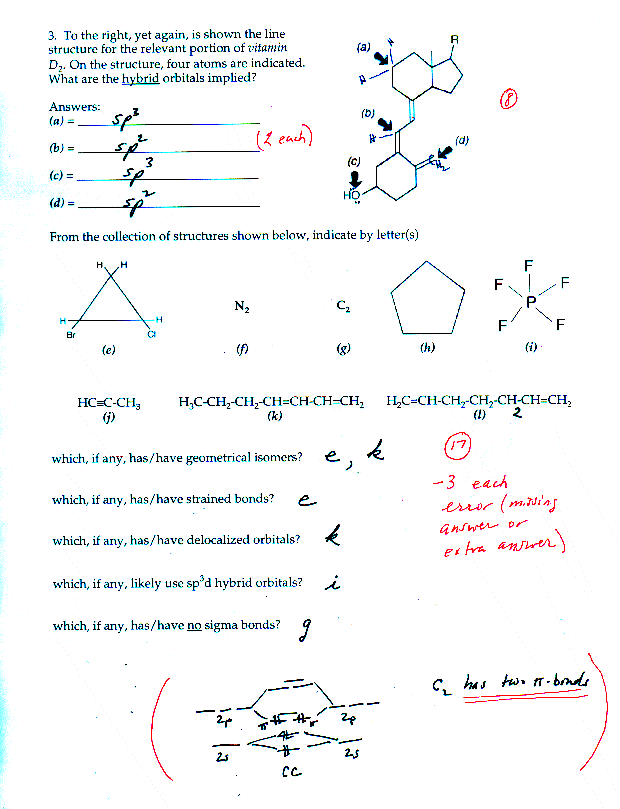 3. To the right, yet again, is shown the line
structure for the relevant portion of vitamin
D₂. On the structure, four atoms are indicated.
What are the hybrid orbitals implied?
Answers:
(a) = sp³
(b) = sp²
(c) = sp³
(d) = sp²
(2 each)
(a)
R
H
H
(b)
H
(c)
HO
(d)
H₂
8
From the collection of structures shown below, indicate by letter(s)
H H
H H
Br Cl
(e)
N₂
(f)
C₂
(g)
(h)
F
F F
P
F F
(i)
HC≡C-CH₃
(j)
H₃C-CH₂-CH₂-CH=CH-CH=CH₂
(k)
H₂C=CH-CH₂-CH₂-CH-CH=CH₂
(l) 2
which, if any, has/have geometrical isomers? e, k
17
-3 each
error (missing
answer or
extra answer)
which, if any, has/have strained bonds? e
which, if any, has/have delocalized orbitals? k
which, if any, likely use sp³d hybrid orbitals? i
which, if any, has/have no sigma bonds? g
C₂ has two π-bonds
2p π π 2p
2s 2s
CC